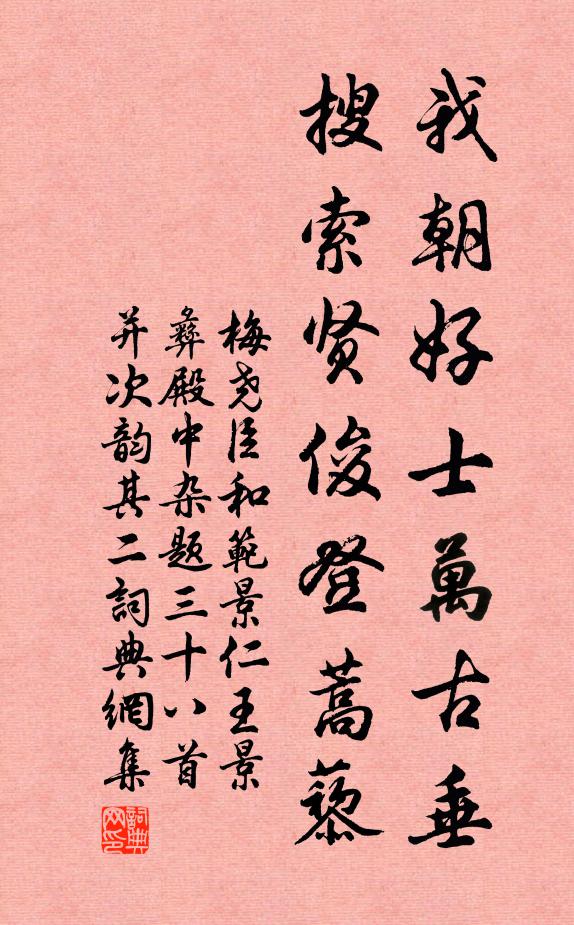 我朝好士萬古垂
搜索贤俊登蒿藜
梅尧臣和範景仁王景
彝殿中杂题三十八首
并次韵其二詞典網集
詞典
网印